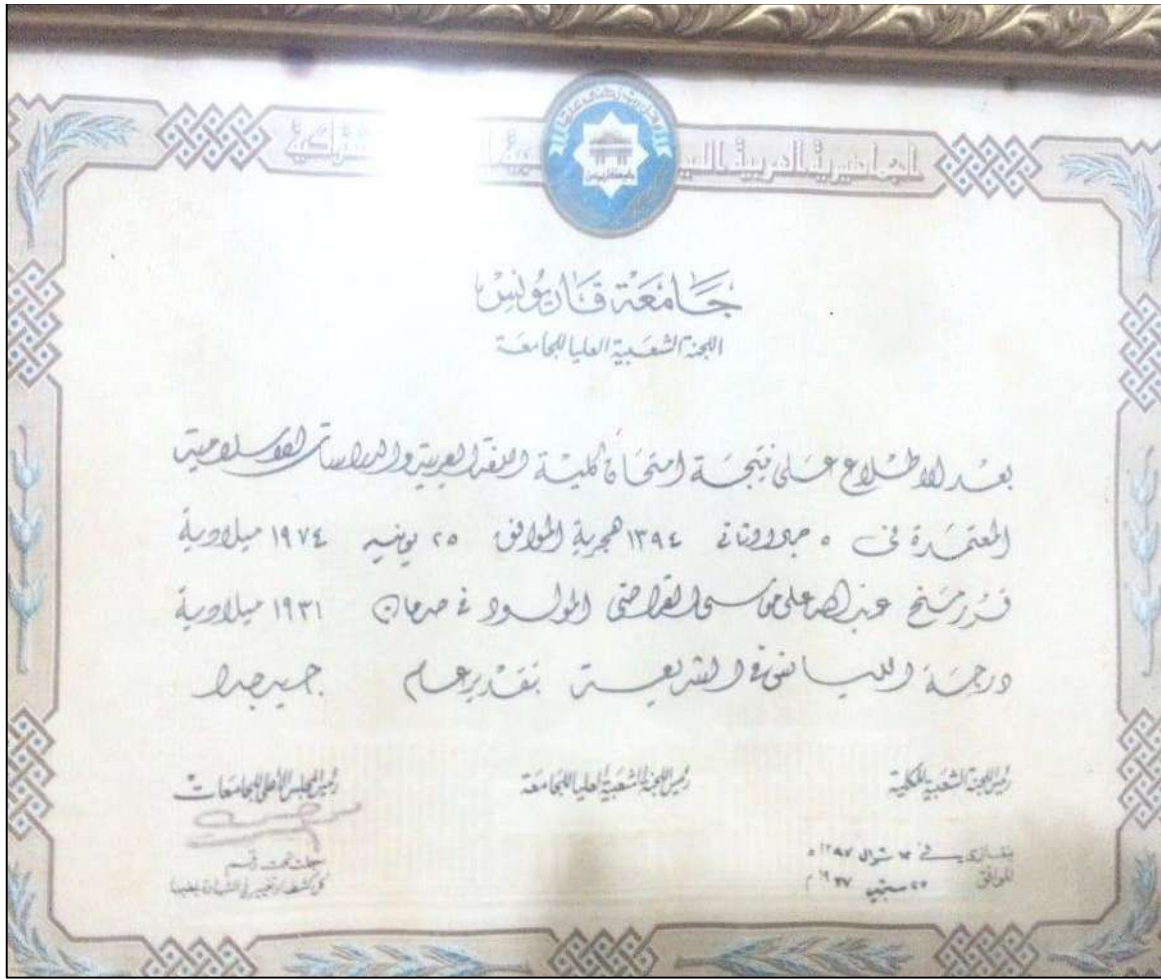 الجماهيرية العربية الليبية
جامعة قاريونس
جامعة قاريونس
اللجنة الشعبية العليا للجامعة
بعد الاطلاع على نتيجة امتحان كلية اللغة العربية والدراسات الاسلامية
المعتمدة في ٥ جماد الثاني ١٣٩٤ هجرية الموافق ٢٥ يونيه ١٩٧٤ ميلادية
قرر منح عبدالله على موسى القراضى المولود في صرمان ١٩٣١ ميلادية
درجة الليسانس في الشريعة بتقدير عام جيد جدا
رئيس اللجنة الشعبية بالكلية
رئيس اللجنة الشعبية العليا للجامعة
رئيس المجلس الأعلى للجامعات
بنغازي في شوال
الموافق ٢٥ سبتمبر
سجلت تحت رقم
كل كشط او تغيير في الشهادة يلغيها